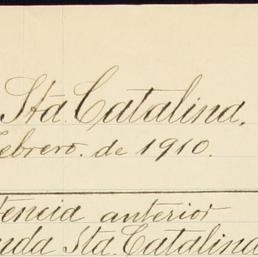 Sta. Catalina.
Febrero. de 1910.
tencia anterior
uda Sta. Catalina